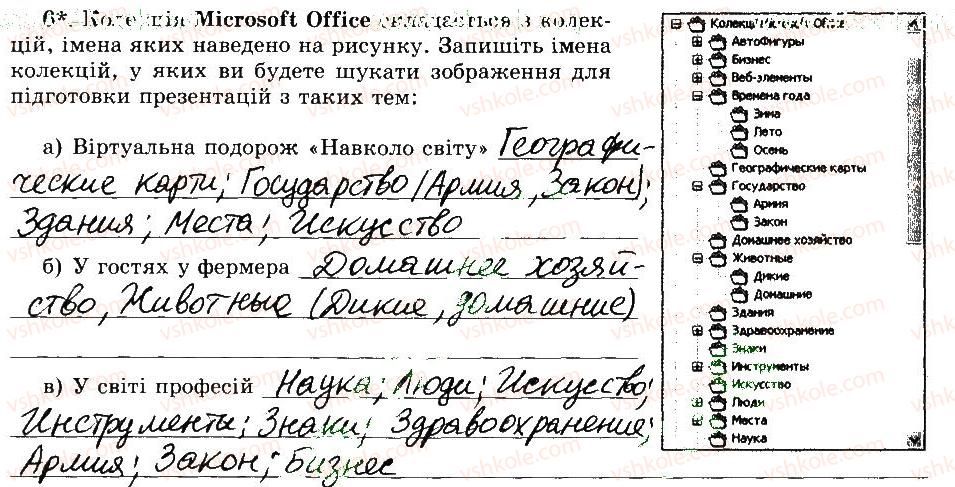 6*. Колекція Microsoft Office складається з колек-
цій, імена яких наведено на рисунку. Запишіть імена
колекцій, у яких ви будете шукати зображення для
підготовки презентацій з таких тем:
а) Віртуальна подорож «Навколо світу» Географи-
ческие карти; Государство (Армия, Закон);
Здания; Места; Искусство
б) У гостях у фермера Домашнее хозяй-
ство, Животные (Дикие, домашние)
в) У світі професій Наука; Люди; Искусство;
Инструменты; Знаки; Здравоохранение;
Армия; Закон; Бизнес
Office
АвтоФигуры
Бизнес
Веб-элементы
Времена года
Зима
Лето
Осень
Географические карты
Государство
Армия
Закон
Домашнее хозяйство
Животные
Дикие
Домашние
Здания
Здравоохранение
Знаки
Инструменты
Искусство
Люди
Места
Наука
vshkole.com